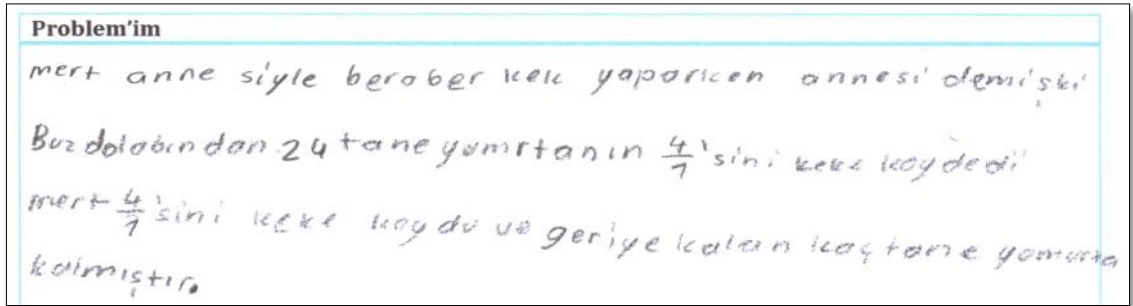 Problem'im
mert anne siyle beraber kek yaparken annesi demişki
Buzdolabından 24 tane yumrtanın 4/1'sini keke koy dedi
mert 4/1'sini keke koydu ve geriye kalan kaç tane yumurta
kalmıştır.